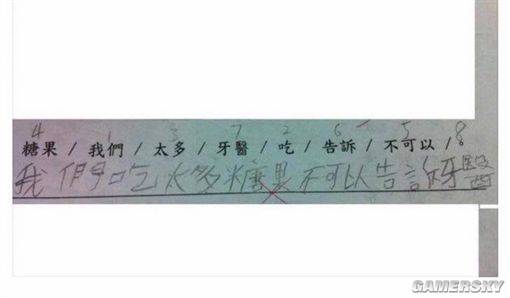 4 1 3 7 2 6 5 8
糖果 / 我們 / 太多 / 牙醫 / 吃 / 告訴 / 不可以 /
我們吃太多糖果不可以告訴牙醫
GAMERSKY